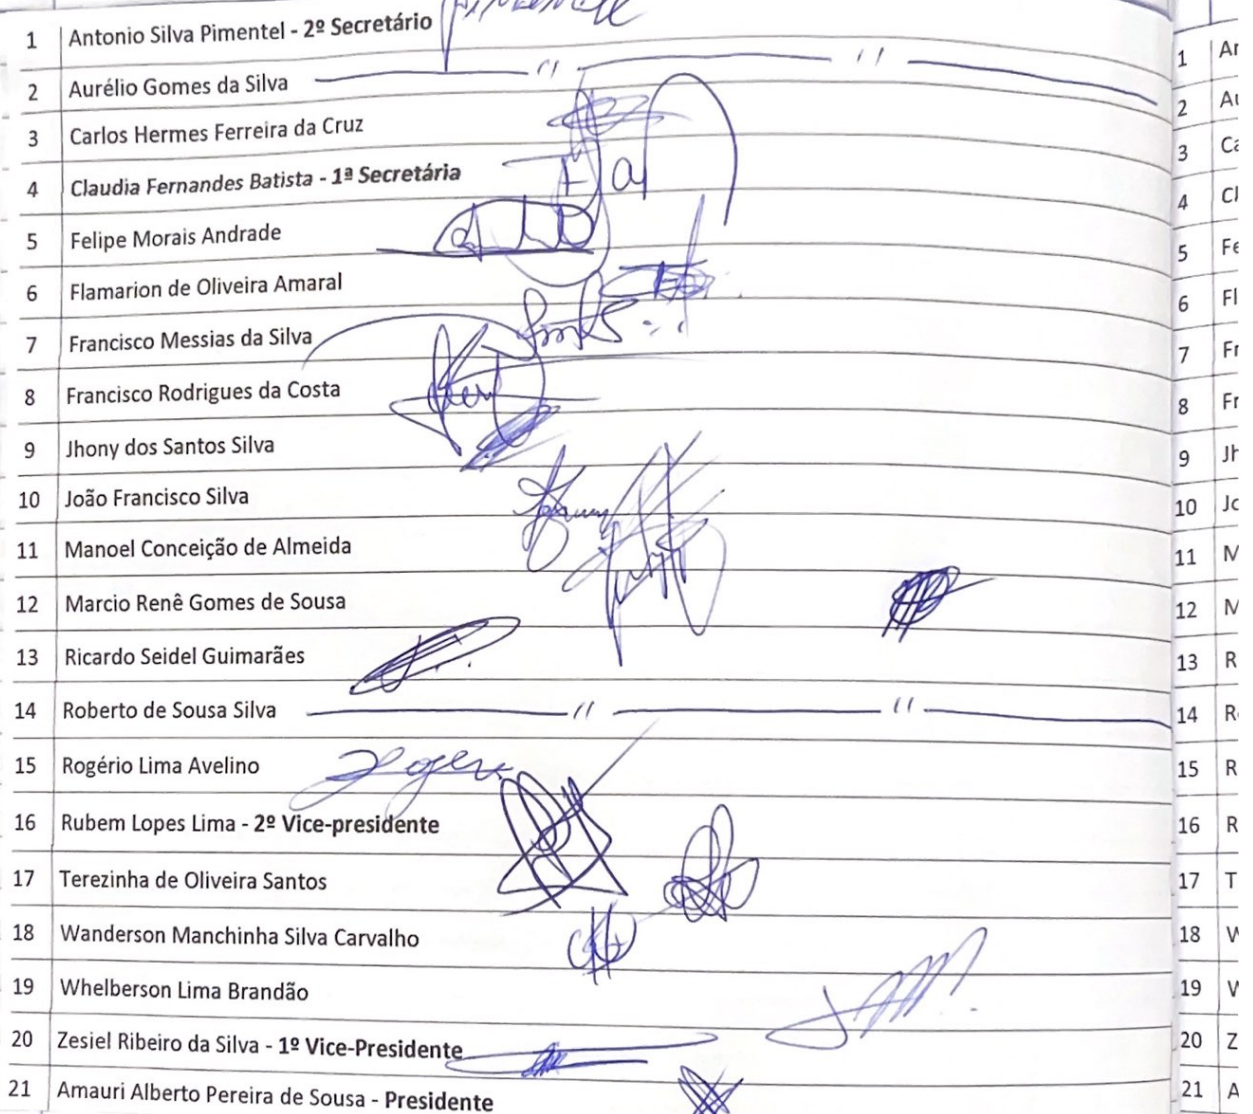 1 Antonio Silva Pimentel - 2º Secretário
2 Aurélio Gomes da Silva
3 Carlos Hermes Ferreira da Cruz
4 Claudia Fernandes Batista - 1ª Secretária
5 Felipe Morais Andrade
6 Flamarion de Oliveira Amaral
7 Francisco Messias da Silva
8 Francisco Rodrigues da Costa
9 Jhony dos Santos Silva
10 João Francisco Silva
11 Manoel Conceição de Almeida
12 Marcio Renê Gomes de Sousa
13 Ricardo Seidel Guimarães
14 Roberto de Sousa Silva
15 Rogério Lima Avelino
16 Rubem Lopes Lima - 2º Vice-presidente
17 Terezinha de Oliveira Santos
18 Wanderson Manchinha Silva Carvalho
19 Whelberson Lima Brandão
20 Zesiel Ribeiro da Silva - 1º Vice-Presidente
21 Amauri Alberto Pereira de Sousa - Presidente
1 Ar
2 Au
3 Ca
4 Cl
5 Fe
6 Fl
7 Fr
8 Fr
9 Jh
10 Jo
11 M
12 M
13 R
14 Ro
15 R
16 R
17 T
18 W
19 W
20 Z
21 A